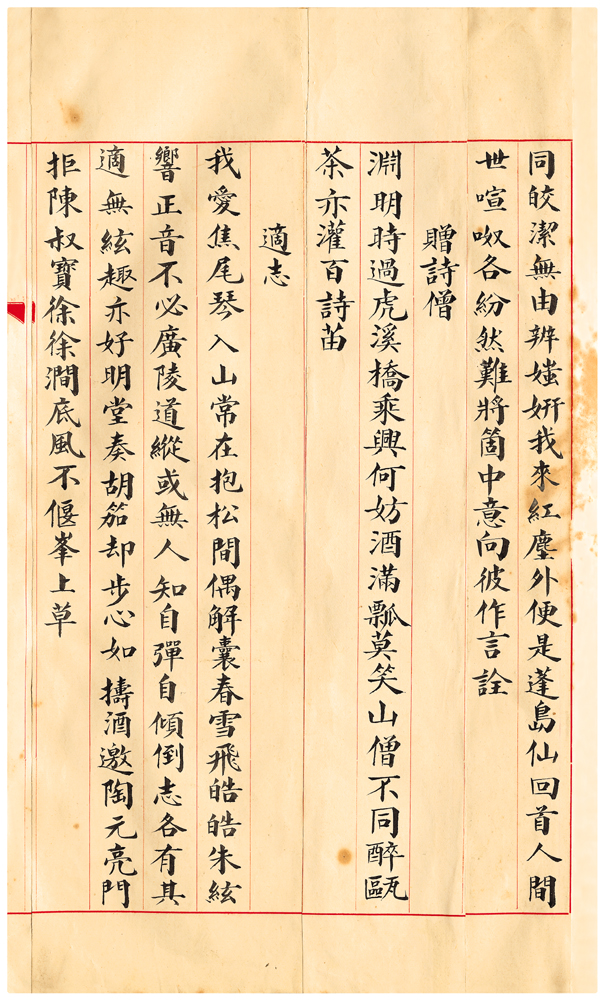 同皎潔無由辨媸妍我來紅塵外便是蓬島仙回首人間
世喧呶各紛然難將箇中意向彼作言詮
贈詩僧
淵明時過虎溪橋乘興何妨酒滿瓢莫笑山僧不同醉甌
茶亦灌百詩苗
適志
我愛焦尾琴入山常在抱松間偶解囊春雪飛皓皓朱絃
響正音不必廣陵道縱或無人知自彈自傾倒志各有其
適無絃趣亦好明堂奏胡笳却步心如擣酒邀陶元亮門
拒陳叔寶徐徐澗底風不偃峯上草